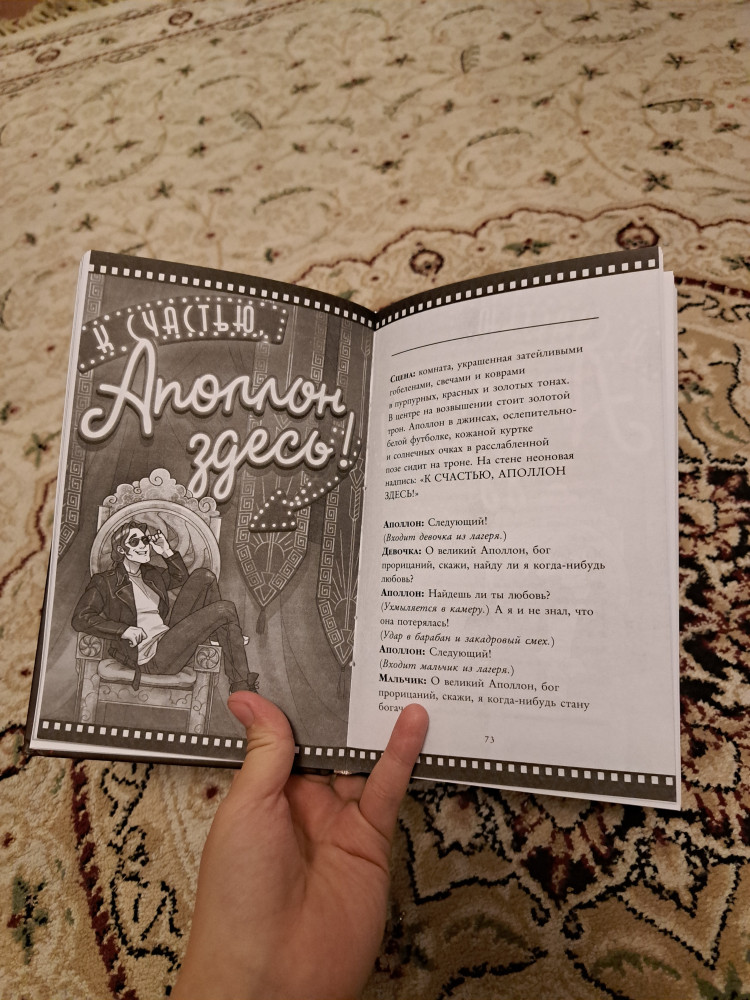 К СЧАСТЬЮ,
Аполлон
здесь!
Сцена: комната, украшенная затейливыми
гобеленами, свечами и коврами
в пурпурных, красных и золотых тонах.
В центре на возвышении стоит золотой
трон. Аполлон в джинсах, ослепительно-
белой футболке, кожаной куртке
и солнечных очках в расслабленной
позе сидит на троне. На стене неоновая
надпись: «К СЧАСТЬЮ, АПОЛЛОН
ЗДЕСЬ!»
Аполлон: Следующий!
(Входит девочка из лагеря.)
Девочка: О великий Аполлон, бог
прорицаний, скажи, найду ли я когда-нибудь
любовь?
Аполлон: Найдешь ли ты любовь?
(Ухмыляется в камеру.) А я и не знал, что
она потерялась!
(Удар в барабан и закадровый смех.)
Аполлон: Следующий!
(Входит мальчик из лагеря.)
Мальчик: О великий Аполлон, бог
прорицаний, скажи, я когда-нибудь стану
73